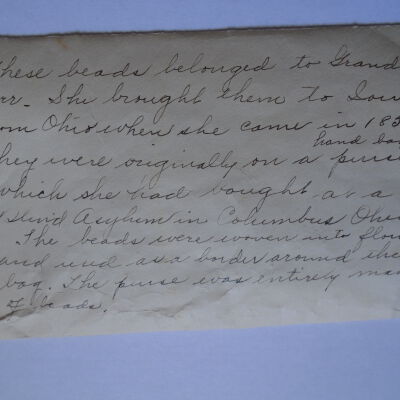 hese beads belonged to Grand
rr. She brought them to Iow
om Ohio when she came in 185
hand ba
hey were originally on a purse
which she had bought at a
Blind Asylum in Columbus Ohio
The beads were woven into flow
and used as a border around the
bag. The purse was entirely ma
of beads.